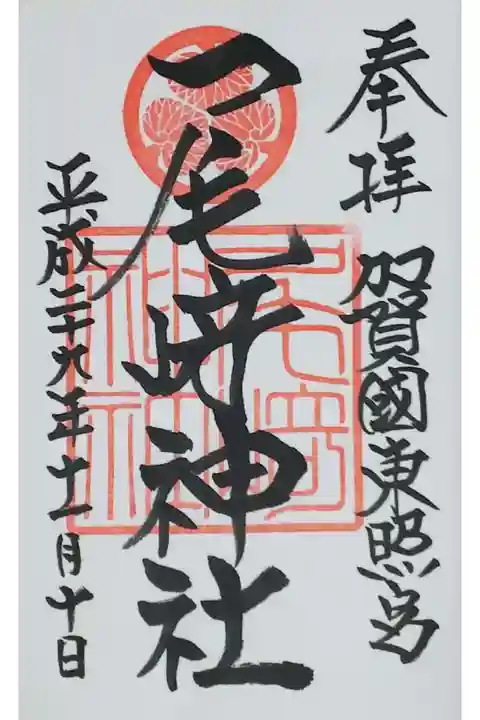 奉拝
加賀國東照宮
尾﨑神社
平成二十九年十一月十日